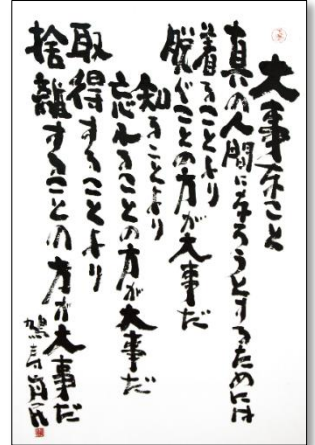 大事なこと
真の人間になろうとするためには
着ることより
脱ぐことの方が大事だ
知ることより
忘れることの方が大事だ
取得することより
捨離することの方が大事だ